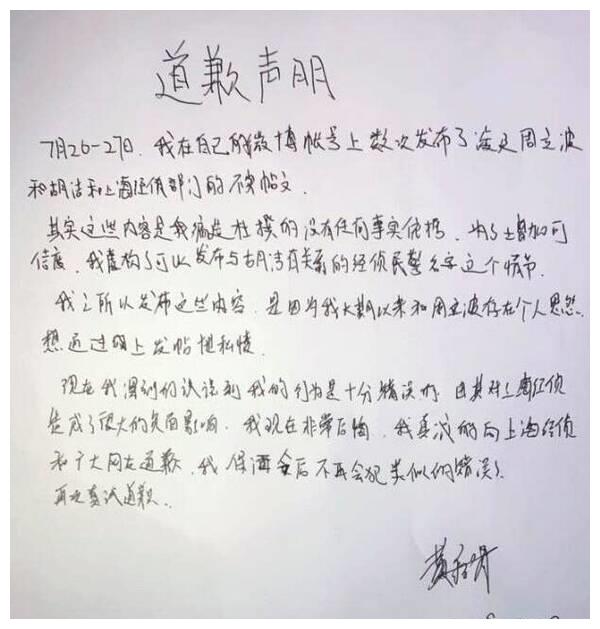 道歉声明
7月26-27日，我在自己的微博帐号上数次发布了涉及周立波
和胡洁和上海经侦部门的不实帖文。
其实这些内容是我编造杜撰的没有任何事实依据，为了增加可
信度，我虚构了可以发布与胡洁有关系的经侦民警名字这个情节。
我之所以发布这些内容，是因为我长期以来和周立波存在个人恩怨，
想通过网上发帖泄私愤。
现在我深刻的认识到我的行为是十分错误的，尤其对上海经侦
造成了很大的负面影响，我现在非常后悔，我真诚的向上海经侦
和广大网友道歉，我保证今后不再会犯类似的错误。
再次真诚道歉。